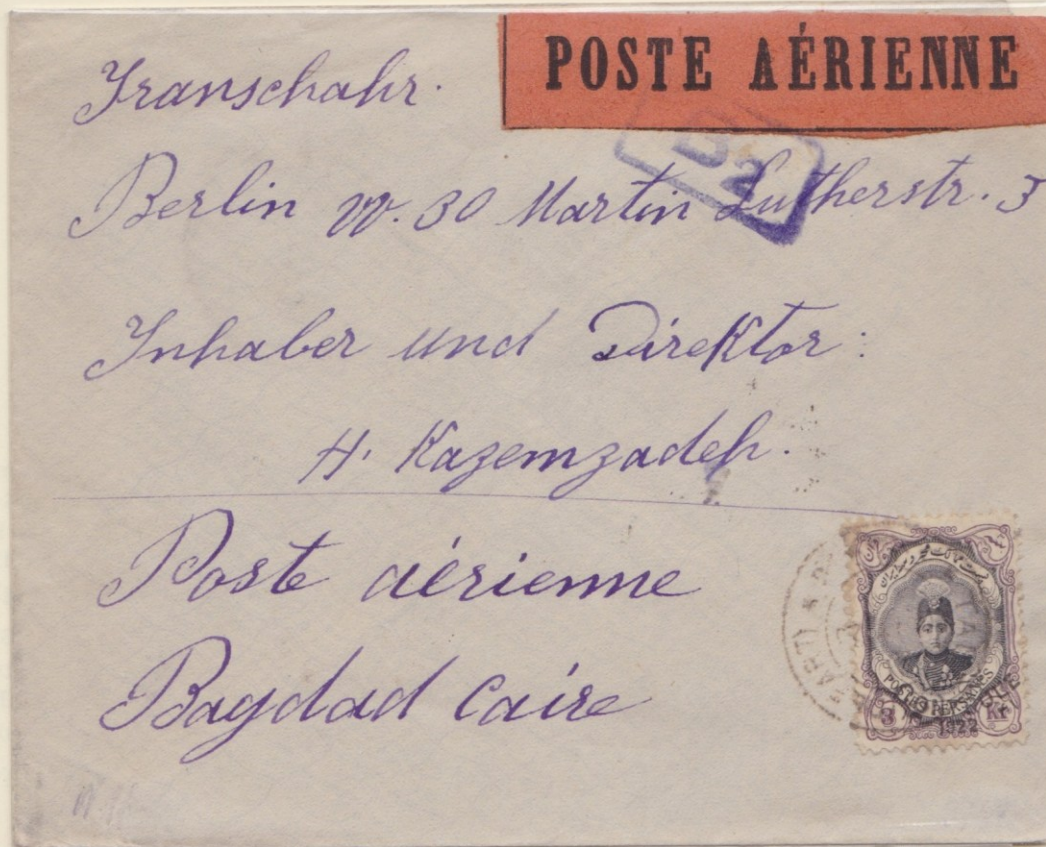 POSTE AÉRIENNE
Iranschahr.
B2
Berlin W. 30 Martin Lutherstr. 5
Inhaber und Direktor:
H. Kazemzadeh.
Poste aérienne
Bagdad Caire
POSTES PERSANES
3 Kr
1922